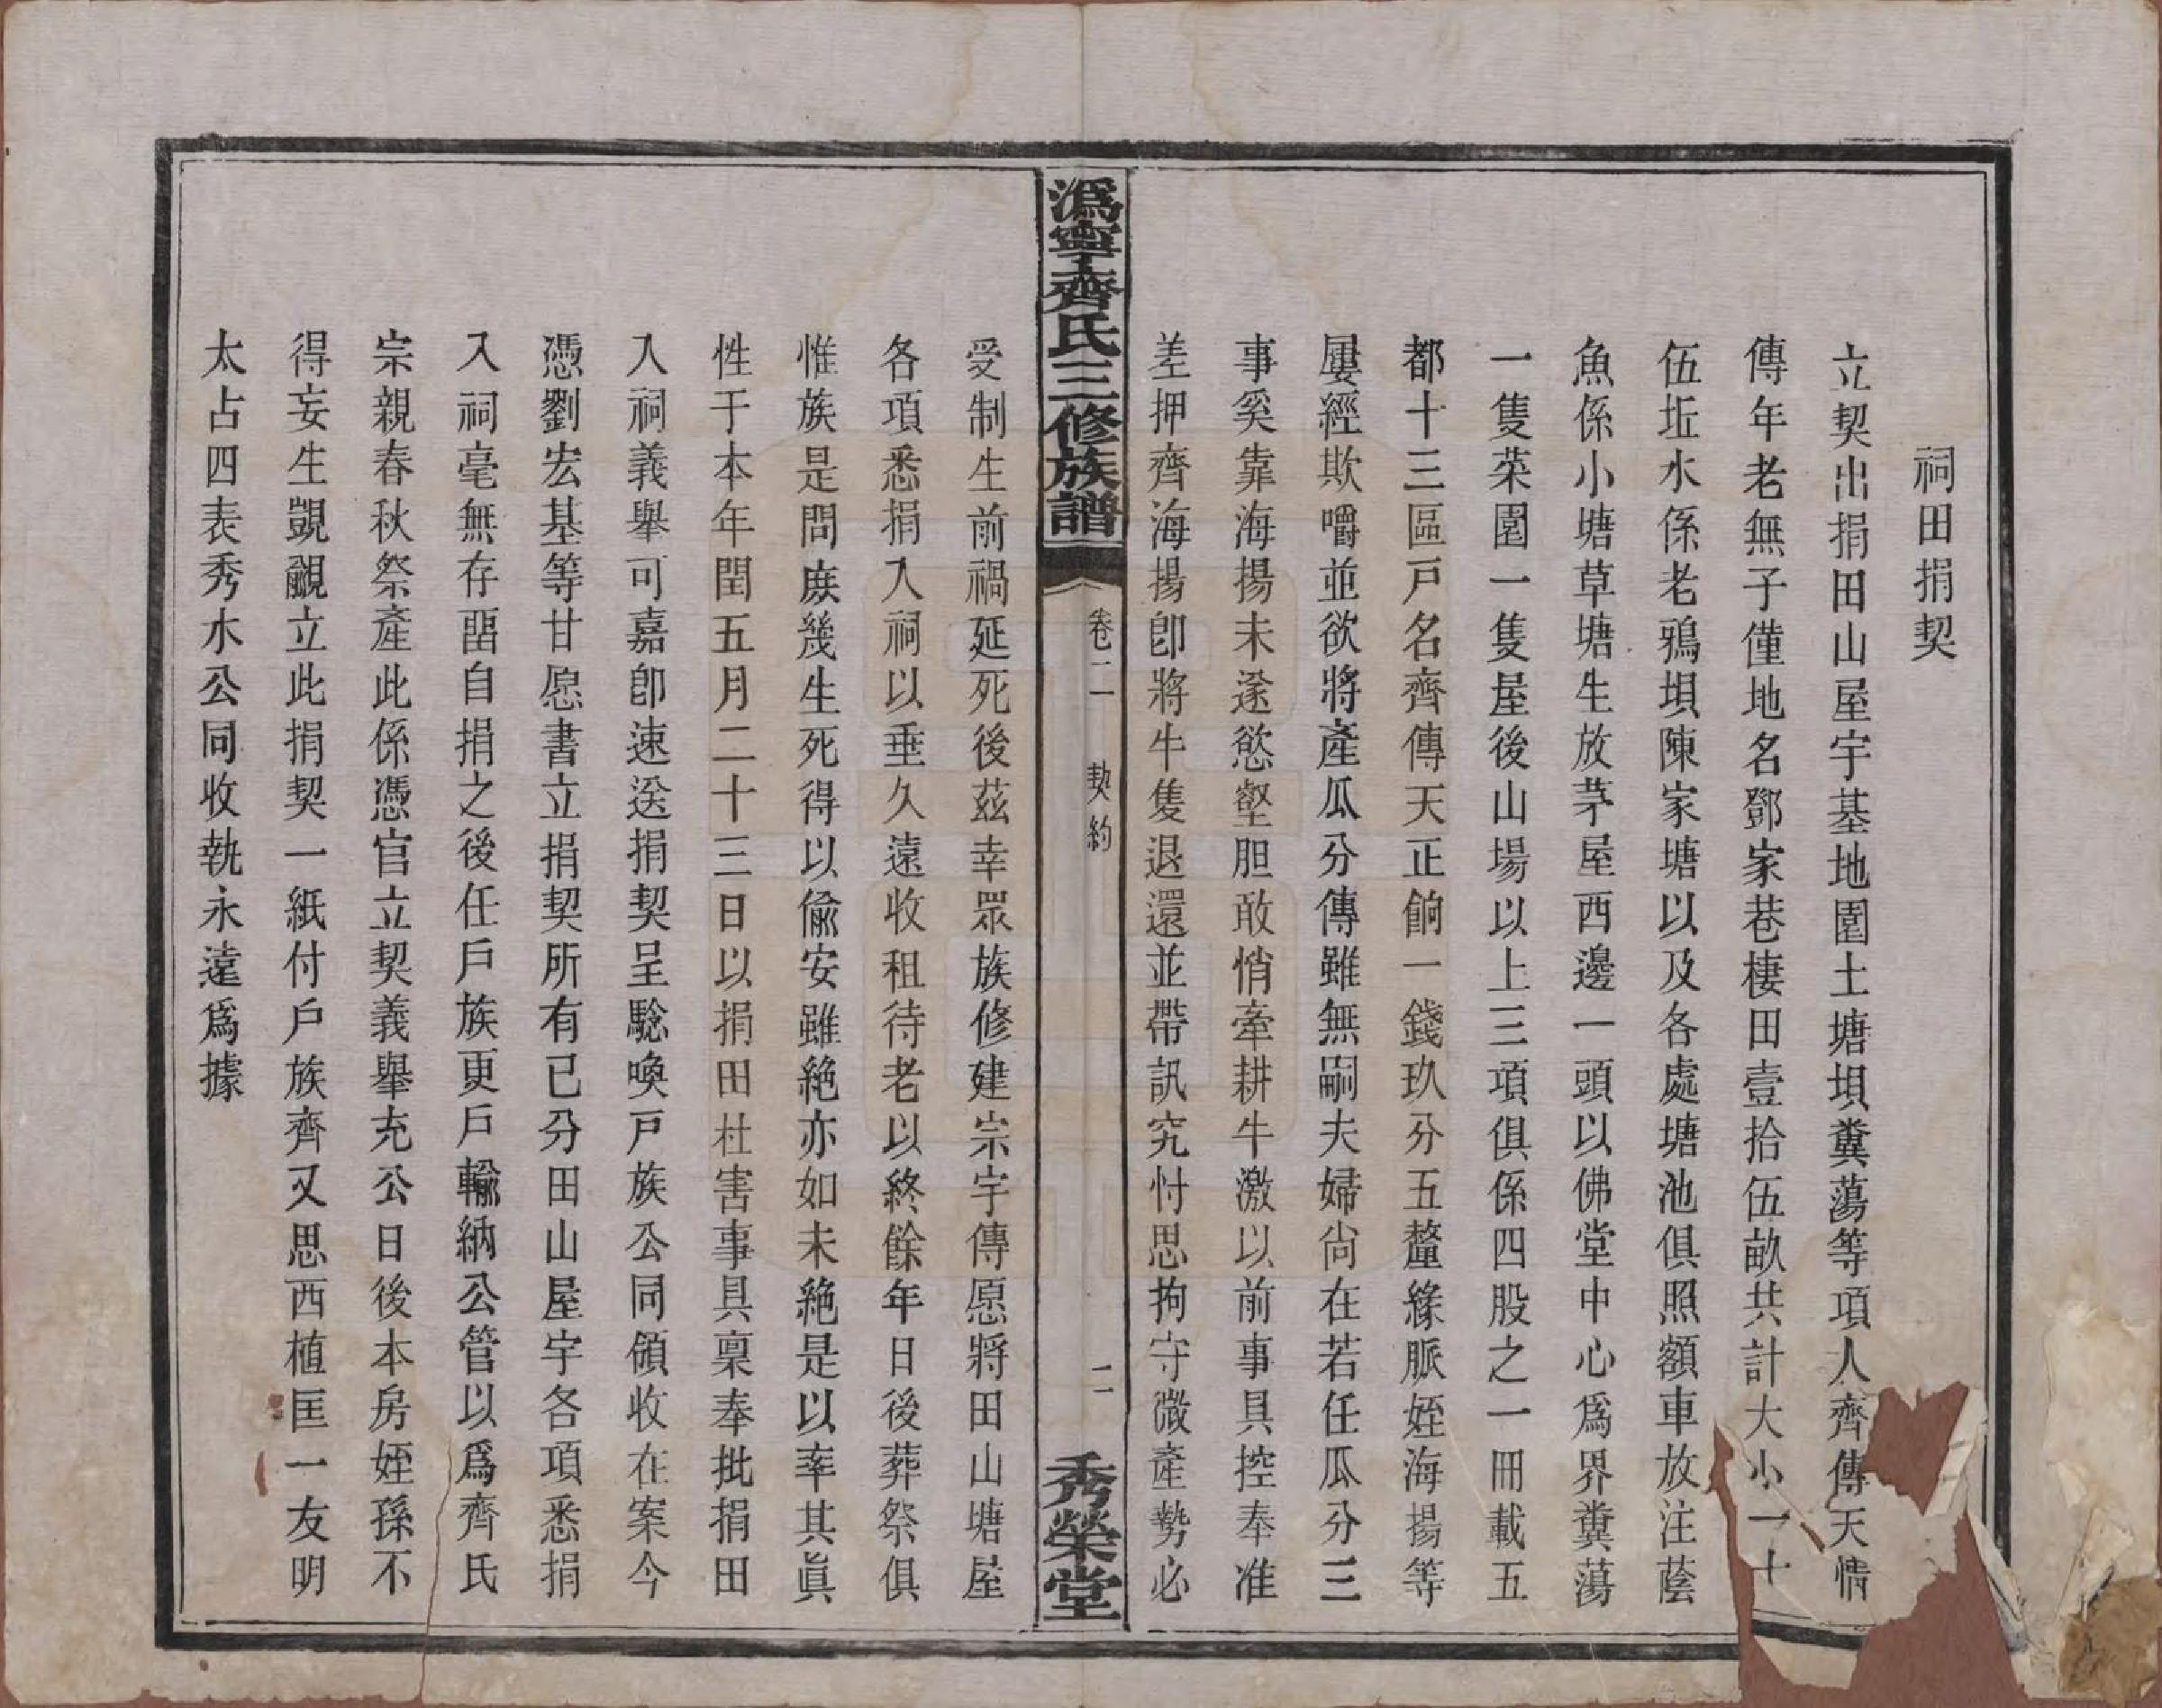 祠田捐契
立契出捐田山屋宇基地園土塘垻糞蕩等項人齊傳天情
傳年老無子僅地名鄧家巷棲田壹拾伍畝共計大小一十
伍坵水係老鴉垻陳家塘以及各處塘池俱照額車放注蔭
魚係小塘草塘生放茅屋西邊一頭以佛堂中心爲界糞蕩
一隻菜園一隻屋後山場以上三項俱係四股之一冊載五
都十三區戸名齊傳天正餉一錢玖分五釐緣脈姪海揚等
屢經欺嚼並欲將產瓜分傳雖無嗣夫婦尙在若任瓜分三
事奚靠海揚未遂慾壑胆敢悄牽耕牛激以前事具控奉准
差押齊海揚卽將牛隻退還並帶訊究忖思拘守微產勢必
溈寧齊氏三修族譜
卷二
契約
二
秀榮堂
受制生前禍延死後茲幸眾族修建宗宇傳愿將田山塘屋
各項悉捐入祠以垂久遠收租待老以終餘年日後葬祭俱
惟族是問庶幾生死得以偷安雖絶亦如未絶是以率其眞
性于本年閏五月二十三日以捐田杜害事具稟奉批捐田
入祠義舉可嘉卽速送捐契呈驗喚戸族公同領收在案今
憑劉宏基等甘愿書立捐契所有已分田山屋宇各項悉捐
入祠毫無存畱自捐之後任戸族更戸輸納公管以爲齊氏
宗親春秋祭產此係憑官立契義舉充公日後本房姪孫不
得妄生覬覦立此捐契一紙付戸族齊又思西植匡一友明
太占四表秀水公同收執永遠爲據